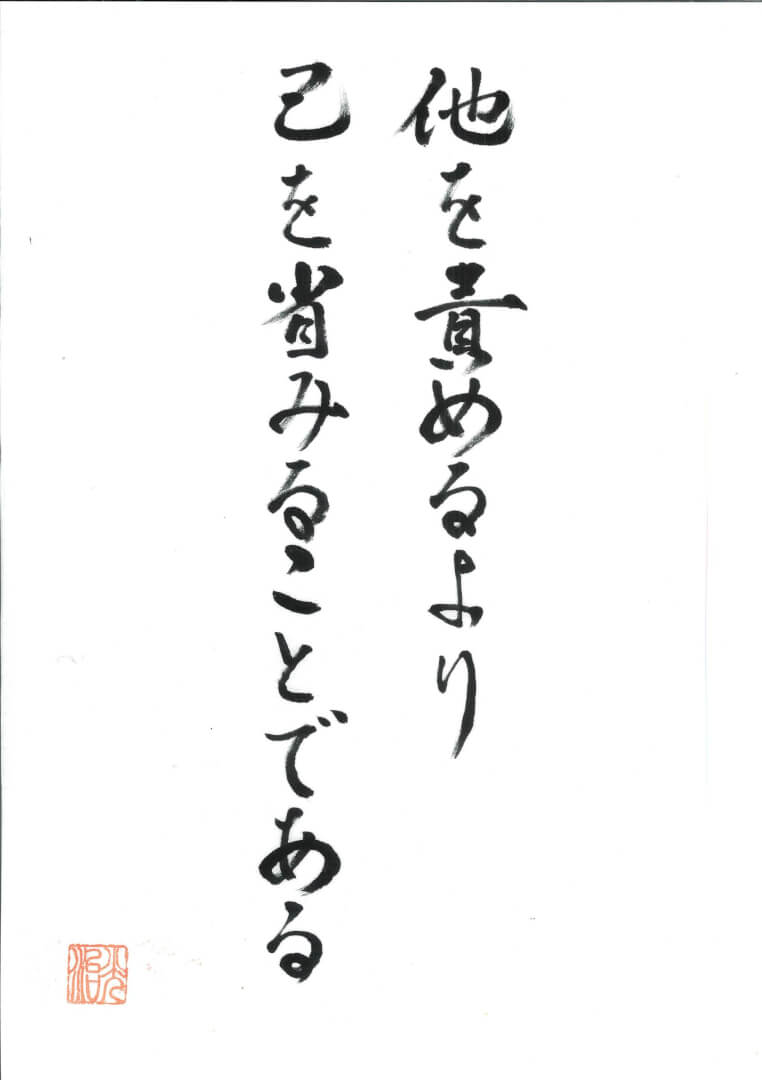 他を責めるより
己を省みることである